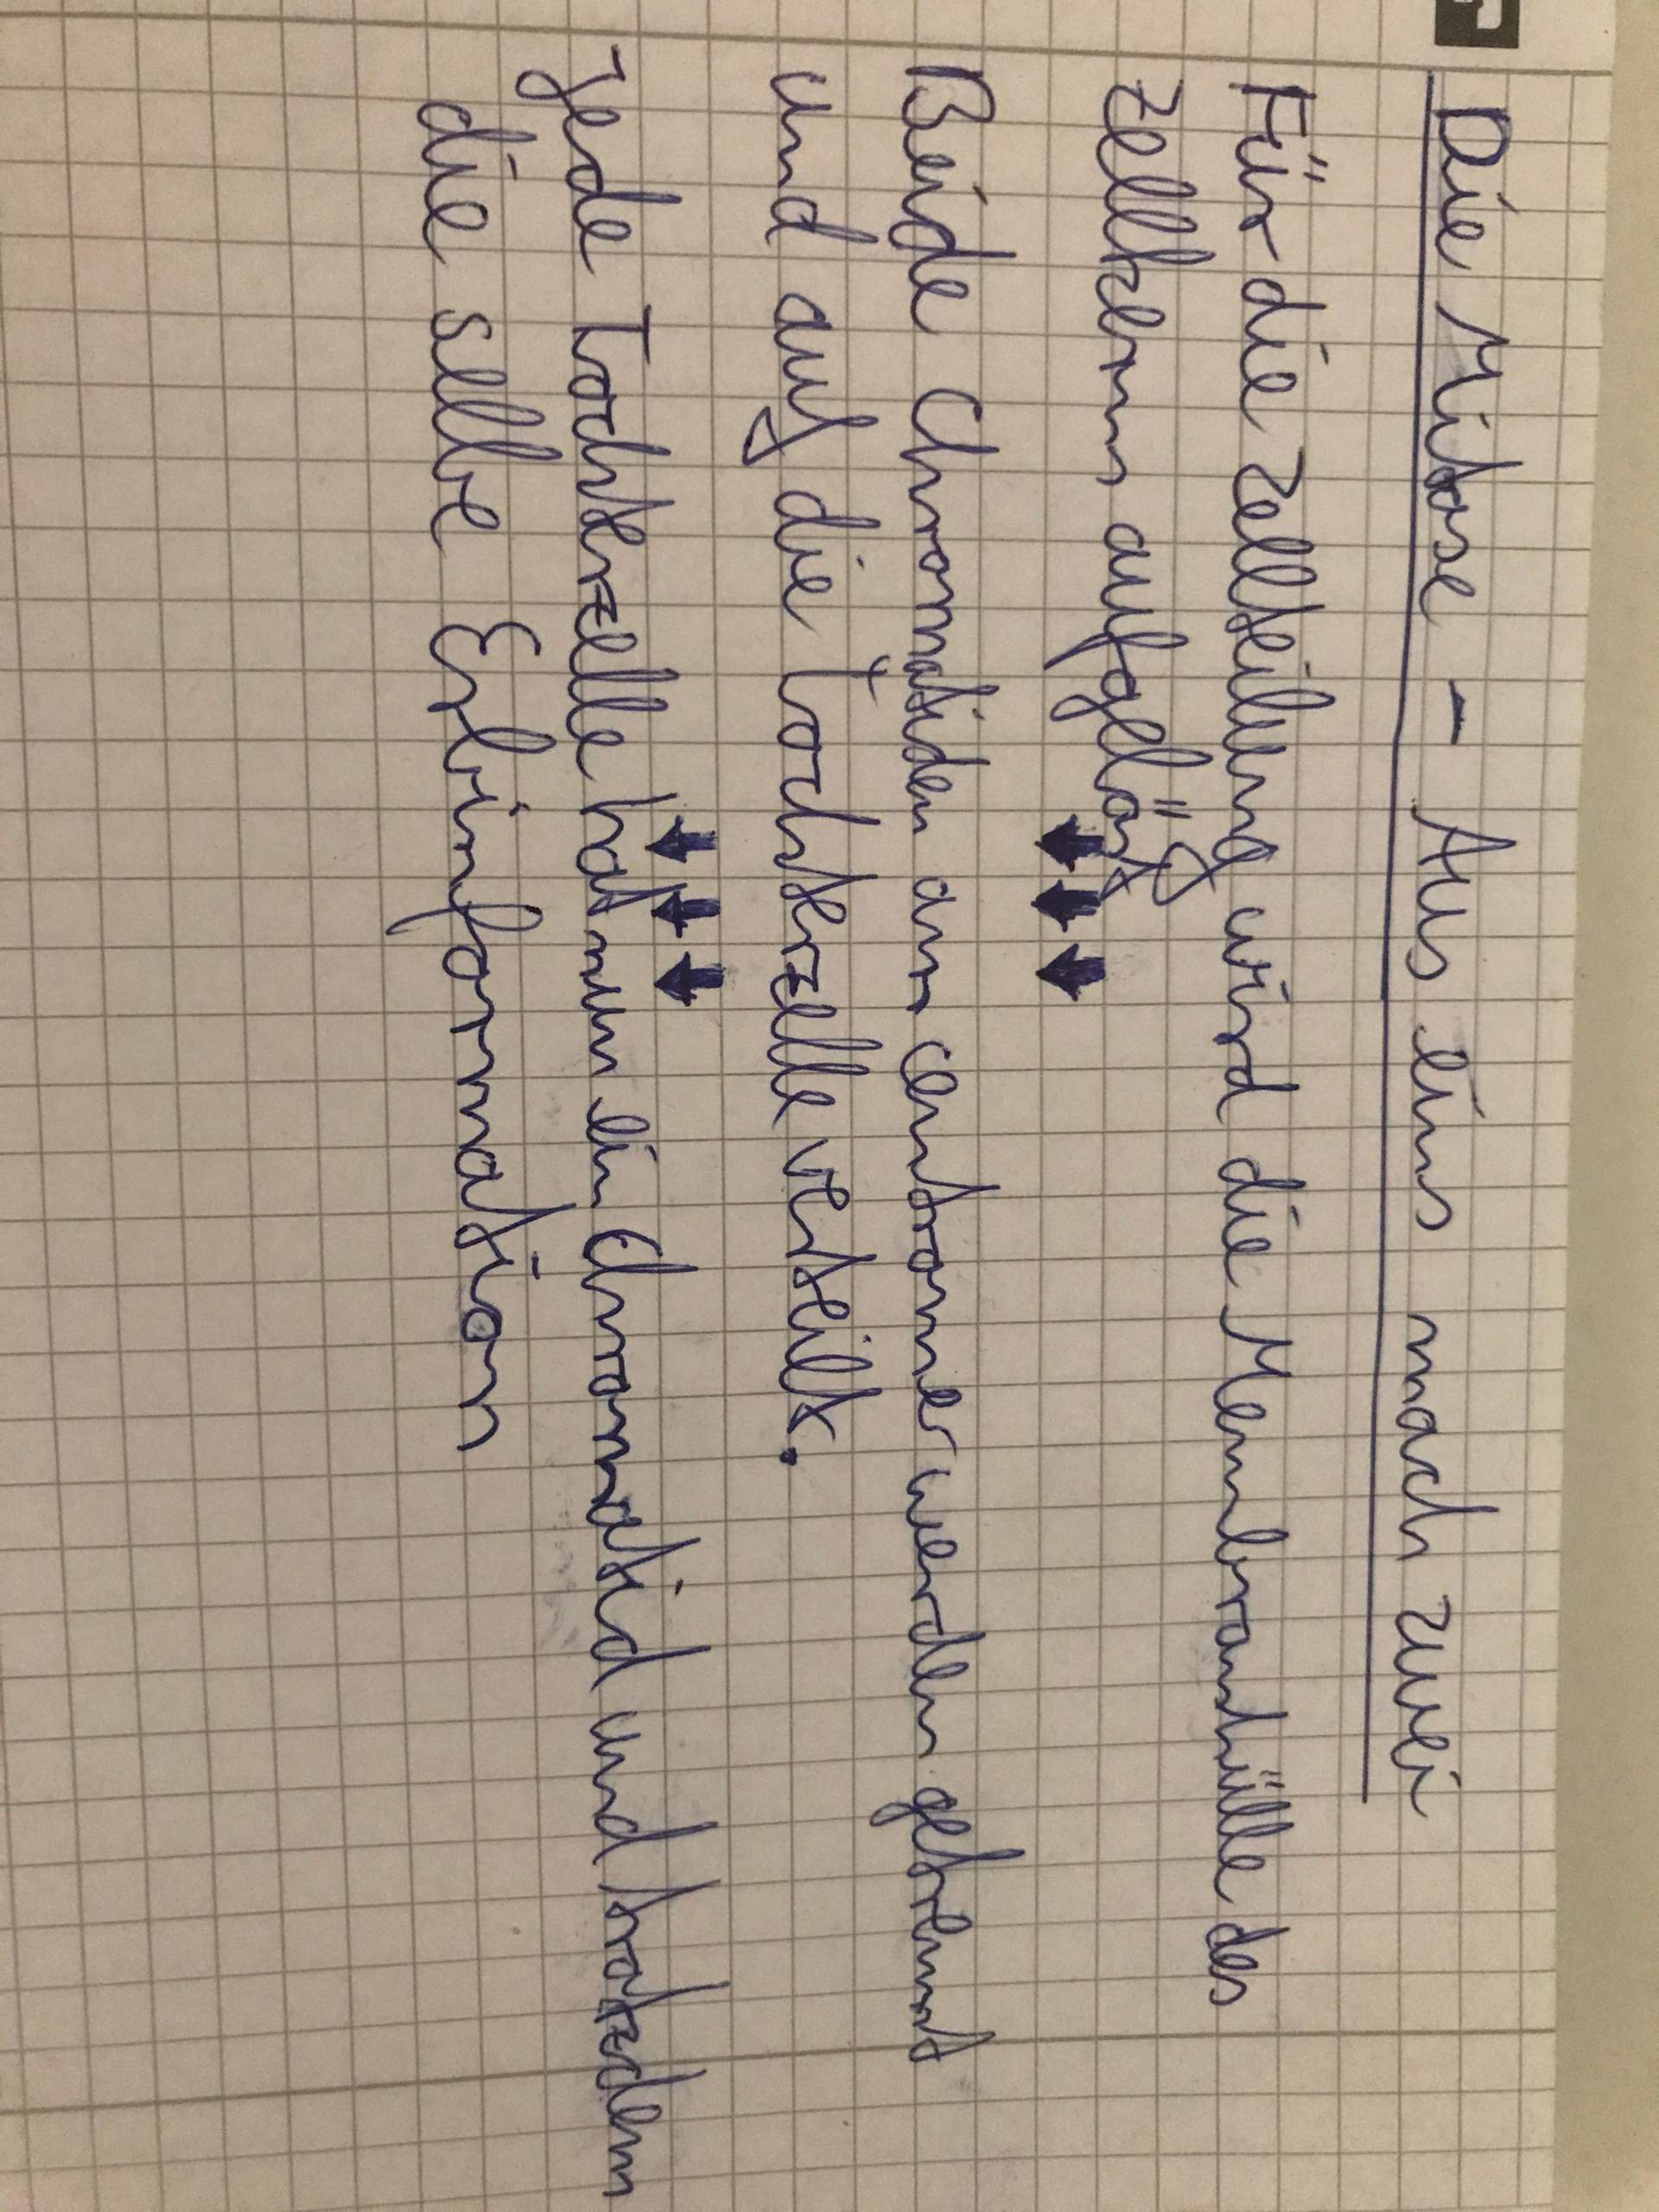 Die Mitose – Aus eins mach zwei
Für die Zellteilung wird die Membranhülle des
Zellkerns aufgelöst
Beide Chromatiden am Centromer werden getrennt
und auf die Tochterzelle verteilt.
Jede Tochterzelle hat nun ein Chromatid und trotzdem
die selbe Erbinformation